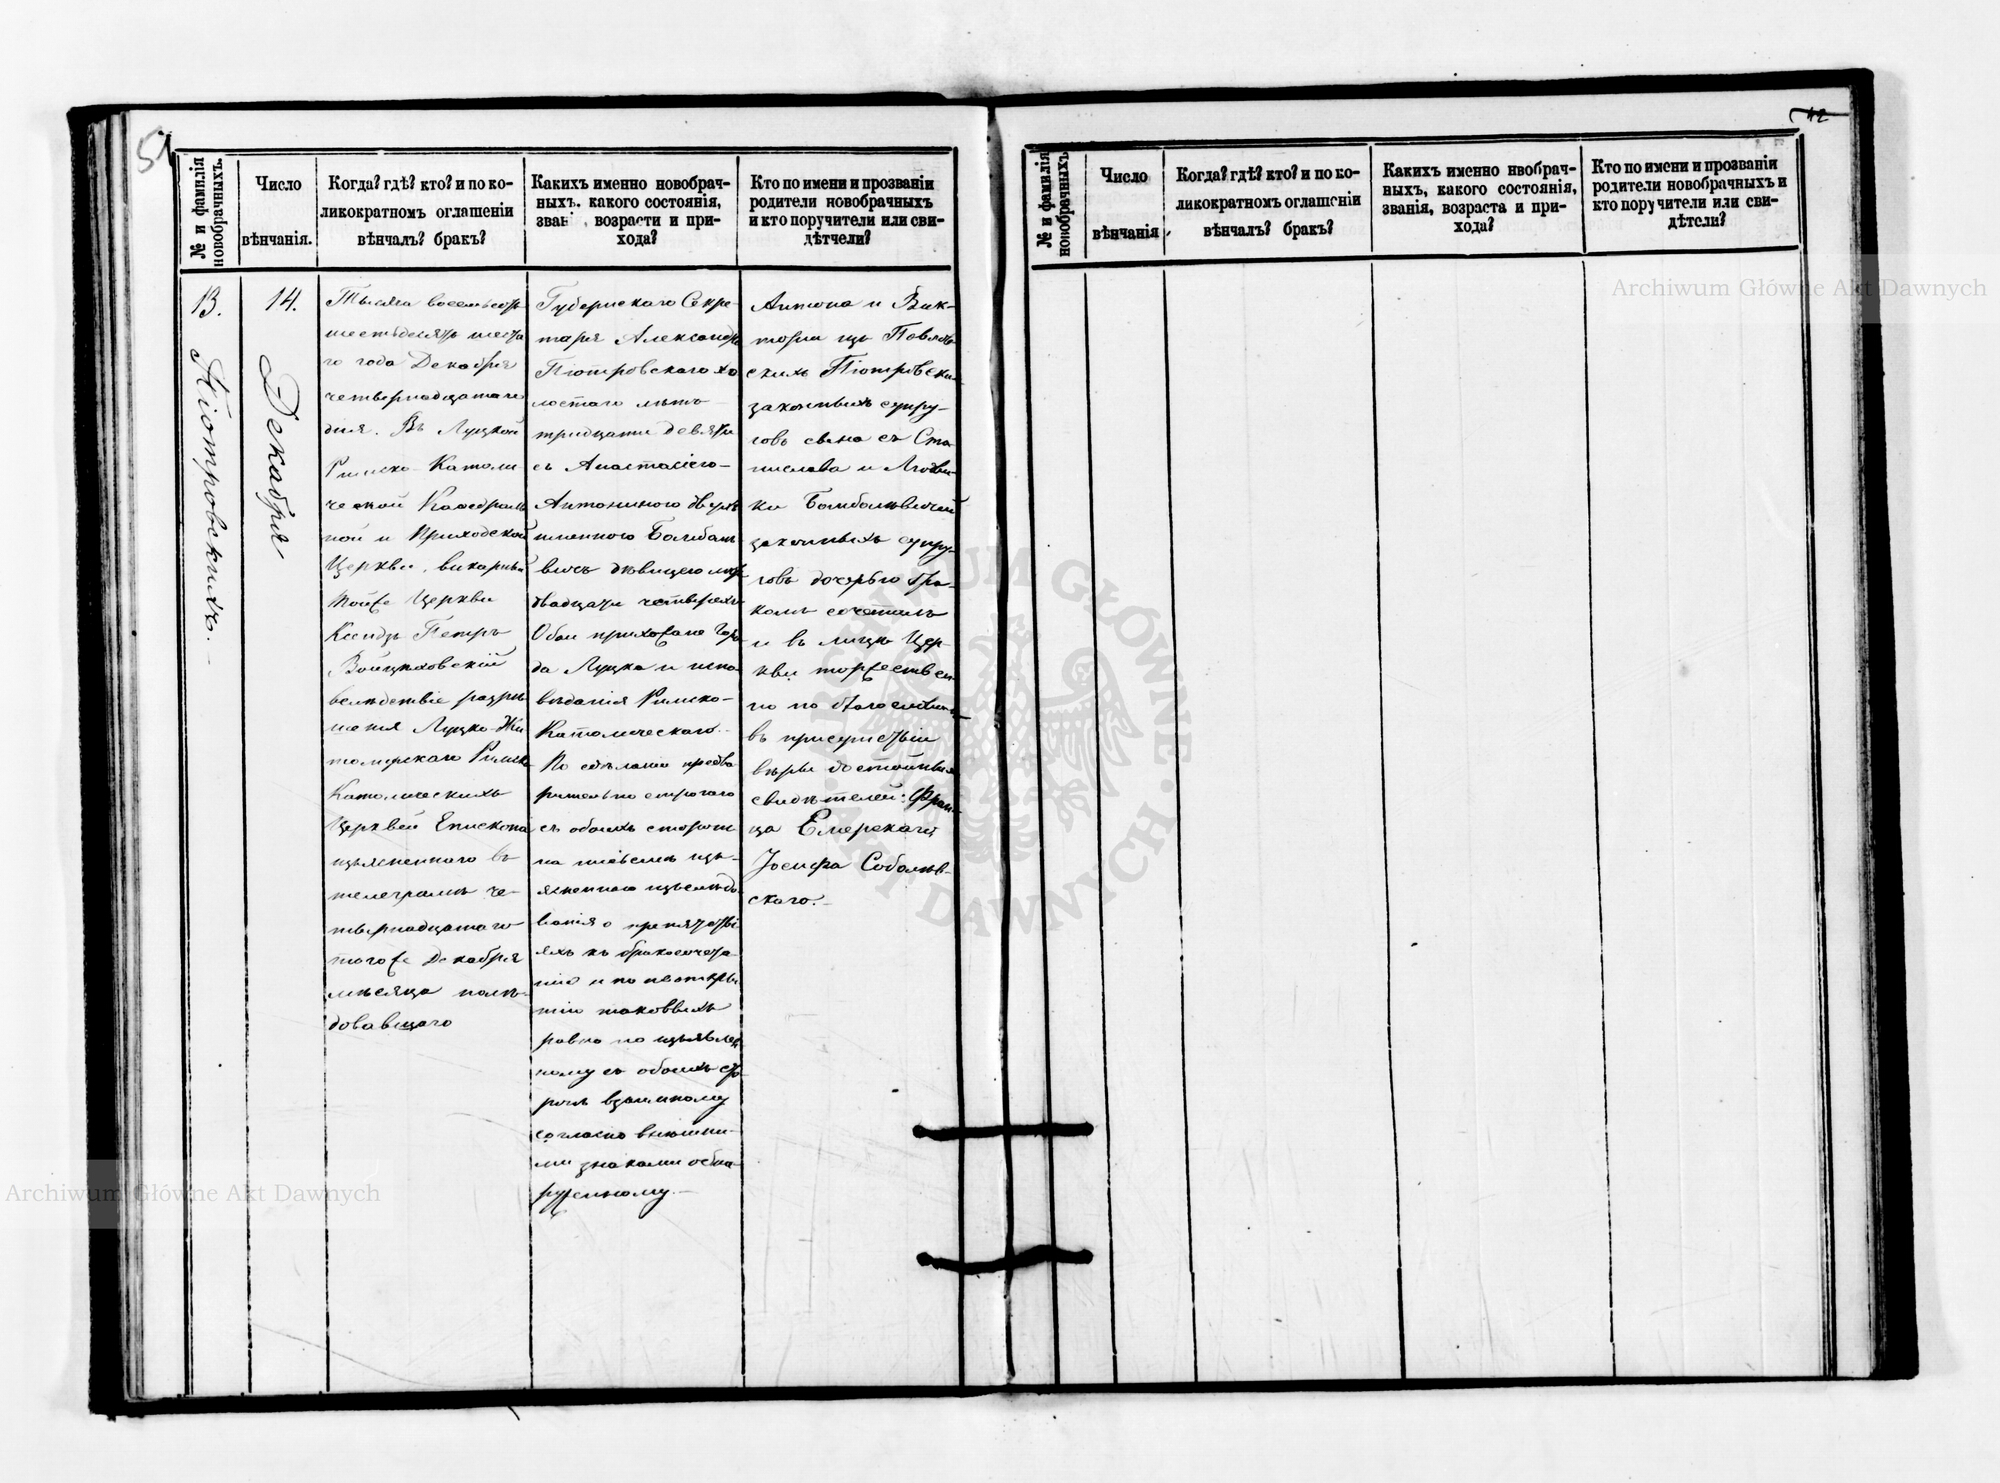 51
42
№ и фамилія новобрачныхъ.
Число
вѣнчанія.
Когда? гдѣ? кто? и по ко-
ликократномъ оглашеніи
вѣнчалъ? бракъ?
Каких именно новобрач-
ныхъ. какого состоянія,
зван , возрасти и при-
хода?
Кто по имени и прозванію
родители новобрачныхъ
и кто поручители или сви-
дѣтчели?
13.
Піотровскихъ.
14.
Декабря
Тысяча восемьсотъ
шестьдесятъ шеста
го года Декабря
четвернадцатаго
дня. Въ Луцкой
Римско-Католи
ческой Каѳедраль
ной и Приходской
Церкви, викарный
тойже Церкви
Ксендзъ Петръ
Войцѣховскій
вслѣдствіе разрѣ
шенія Луцко-Жи
томирскаго Римско
Католическихъ
Церквей Епископа
изъясненного въ
телеграммѣ че-
твернадцатаго
тогоже Декабря
мѣсяца послѣ-
довавшаго
Губернскаго Секре-
таря Александра
Піотровскаго хо
лостаго лѣтъ
тридцати девяти
съ Анастасіею-
Антониною двухъ
именною Бомболѣ
вичъ дѣвицею лѣтъ
двадцати четырехъ
Обои прихожане горо
да Луцка и испо
вѣданія Римско-
Католическаго.-
По сдѣланіи предва
рительно строгаго
съ обоихъ сторонъ
на письмѣ изъ-
ясненнаго изслѣдо
ванія о препятстві
яхъ къ бракосочета
нію и по неоткры
тію таковыхъ
равно по изъявлен
ному съ обоихъ сто
ронъ взаимному
согласію внѣшни-
ми знаками обна-
руженному.-
Антона и Вик-
торіи изъ Павлов
скихъ Піотровски
законныхъ супру-
говъ сына съ Ста
нислава и Людви-
ки Бомболѣвичей
законныхъ супру-
говъ дочерью бра-
комъ сочеталъ
и въ лицѣ Цер-
кви торжествен
но поблагословилъ
въ присутствіи
вѣры достойныхъ
свидѣтелей: Фран-
ца Емерскаго
Іосифа Соболѣв-
скаго.-
№ и фамилія новобрачныхъ
Число
вѣнчанія
Когда? гдѣ? кто? и по ко-
ликократномъ оглашеніи
вѣнчалъ? бракъ?
Какихъ именно нвобрач-
ныхъ, какого состоянія,
званія, возраста и при-
хода?
Кто по имени и прозванію
родители новобрачныхъ и
кто поручители или сви-
дѣтели?
Archiwum Główne Akt Dawnych
Archiwum Główne Akt Dawnych
ARCHIWUM GŁÓWNE · AKT DAWNYCH ·